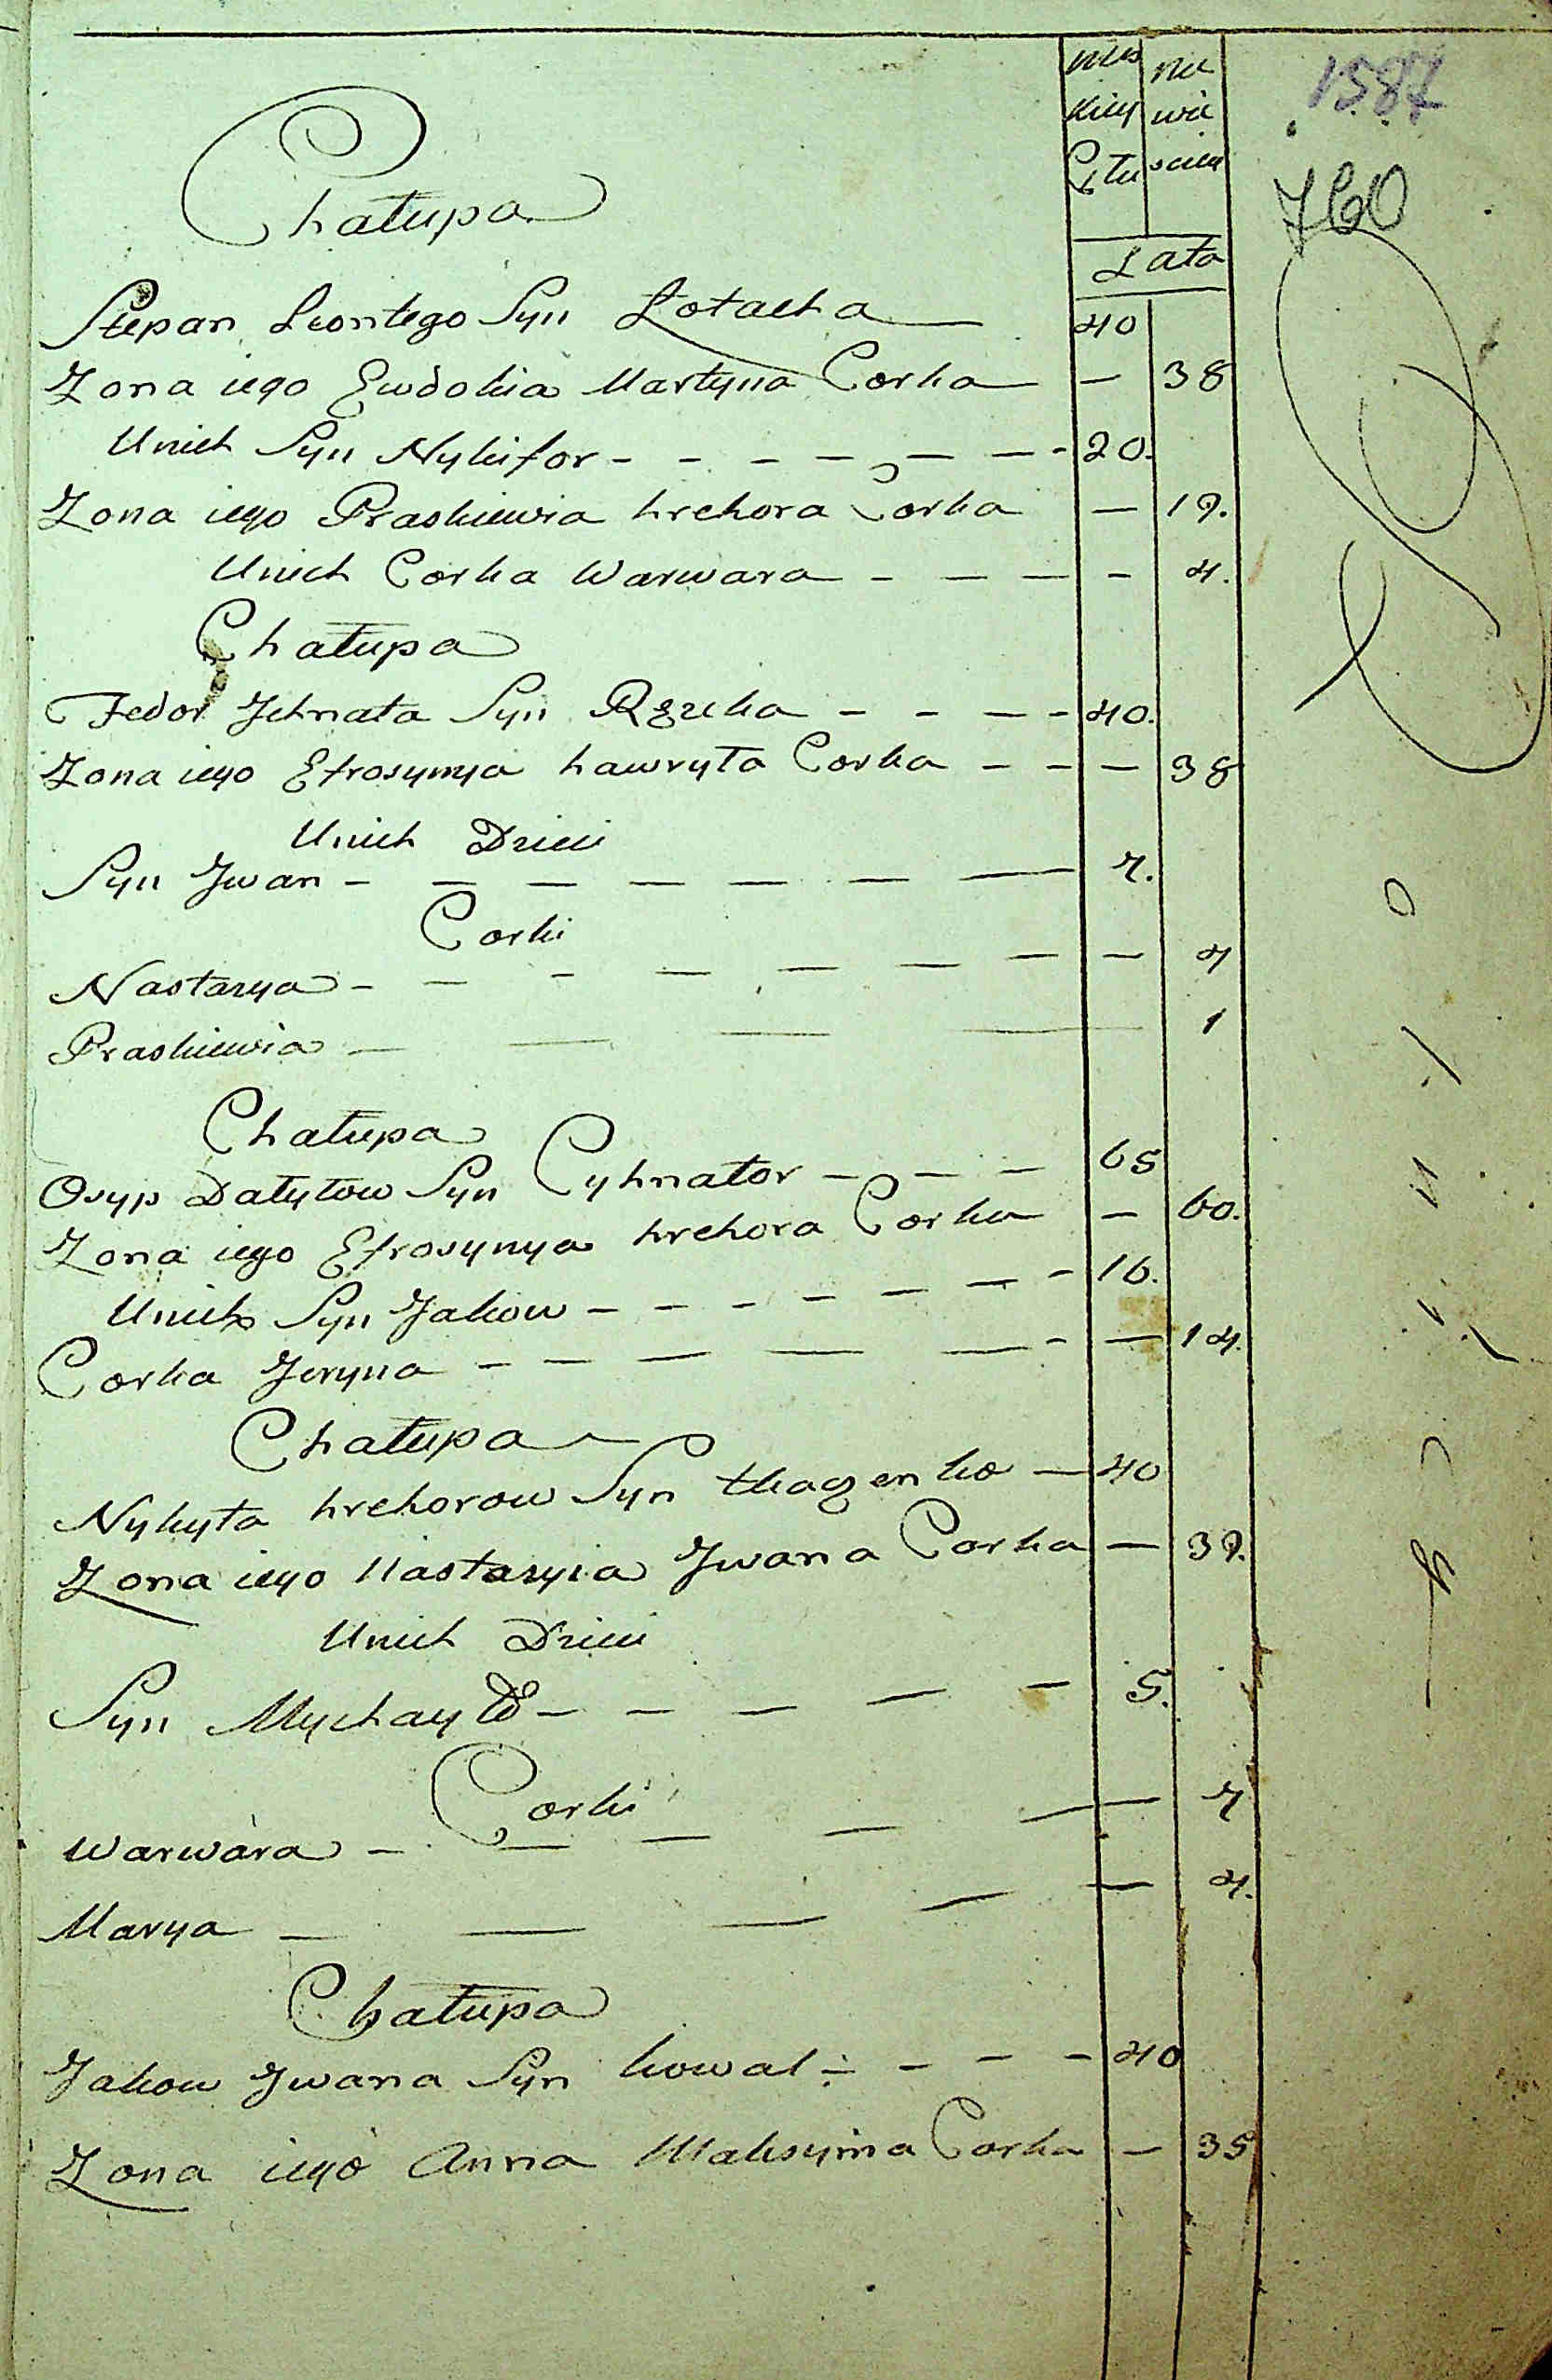 mes na
kiey wie
Płu sciey
1587
760
Chałupa
Lata
Stepan Leontego Syn Łotacha 40
Zona iego Ewdokia Martyna Corka — 38
Unich Syn Nykifor - - - - - - - 20.
Zona iego Praskiewia hrehora Corka — 19.
Unich Corka Warwara - - - - 4.
Chałupa
Fedor Jehnata Syn - - - - 40.
Zona iego Efrosynya hawryła Corka - - - 38
Unich Dzieci
Syn Jwan - - - - - - - 7.
Corki
Nastazya - - - - - - - - 4
Praskiewia - - - - 1
Chałupa
Osyp Datyłow Syn Cyhnator - - - 65
Zona iego Efrosynya hrehora Corka — 60.
Unich Syn Jakow - - - - - - - 16.
Corka Jeryna - - - - - - - 14.
Chałupa
Nykyta hrehorow Syn tkaczenko — 40
Zona iego Nastazyia Jwana Corka — 39.
Unich Dzieci
Syn Mychayło - - - - - 5.
Corki
Warwara - - - - - - 7
Marya - - - - - 4.
Chałupa
Jakow Jwana Syn kowal - - - - 40
Zona iego Anna Maksyma Corka — 35